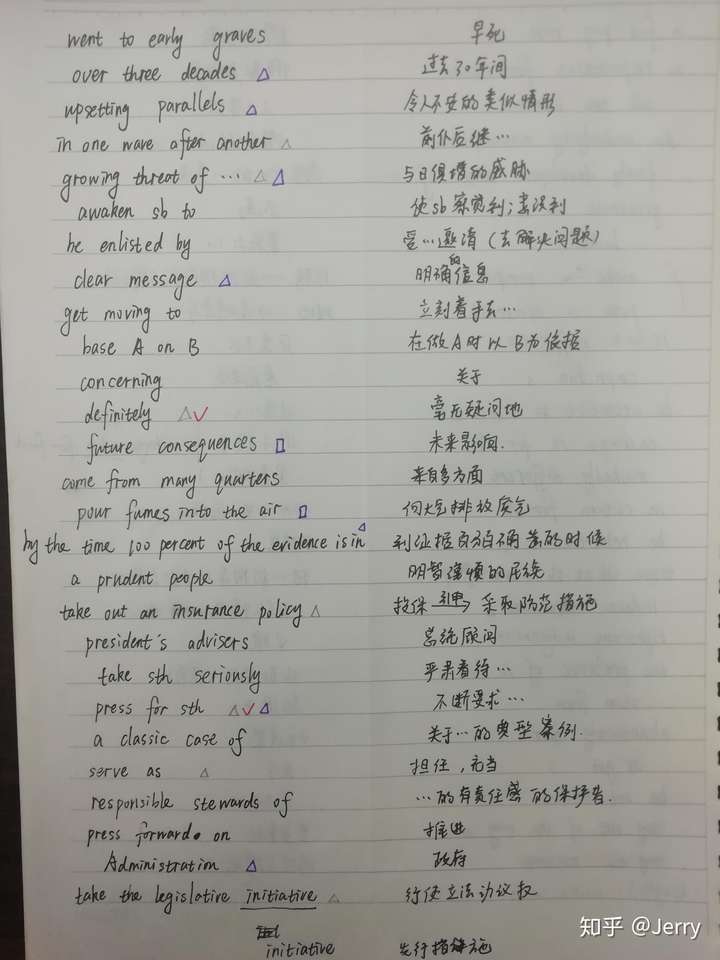 went to early graves 早死
over three decades 过去30年间
upsetting parallels 令人不安的类似情形
in one wave after another 前仆后继…
growing threat of … 与日俱增的威胁
awaken sb to 使sb察觉到;意识到
be enlisted by 受…邀请(去解决问题)
clear message 明确的信息
get moving to 立刻着手去…
base A on B 在做A时以B为依据
concerning 关于
definitely 毫无疑问地
future consequences 未来影响.
come from many quarters 来自多方面
pour fumes into the air 向大气排放废气
by the time 100 percent of the evidence is in 到证据百分百确凿的时候
a prudent people 明智谨慎的民族
take out an insurance policy 投保 引申→ 采取防范措施
president's advisers 总统顾问
take sth seriously 严肃看待…
press for sth 不断要求…
a classic case of 关于…的典型案例.
serve as 担任,充当
responsible stewards of …的有责任感的保护者.
press forward on 推进
Administration 政府
take the legislative initiative 行使立法动议权
initiative 先行措施
知乎 @Jerry